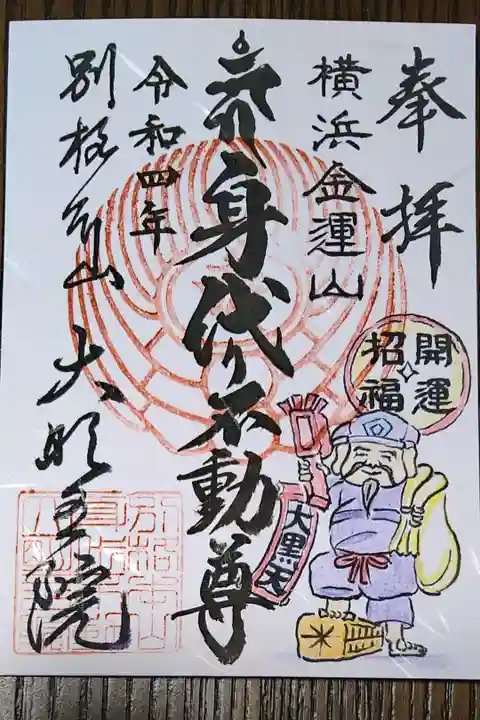 奉拝
横浜金運山
開運
招福
大黒天
米
身代り不動尊
令和四年
別格本山 大明王院